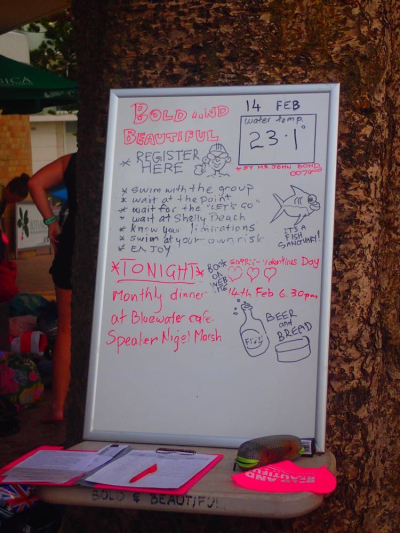 BOLD AND
BEAUTIFUL
14 FEB
water temp.
23.1°
* REGISTER
HERE
* swim with the group
* wait at the point
* wait for the "LET'S GO"
* wait at Shelly Beach
* know your limitations
* swim at your own risk
ENJOY
IT'S A
FISH
SANCTUARY!
*TONIGHT*
Valentines Day
Monthly dinner
14th Feb 6.30pm
at Bluewater cafe.
Speaker Nigel Marsh
BEER
and
BREAD
BOLD & BEAUTIFUL